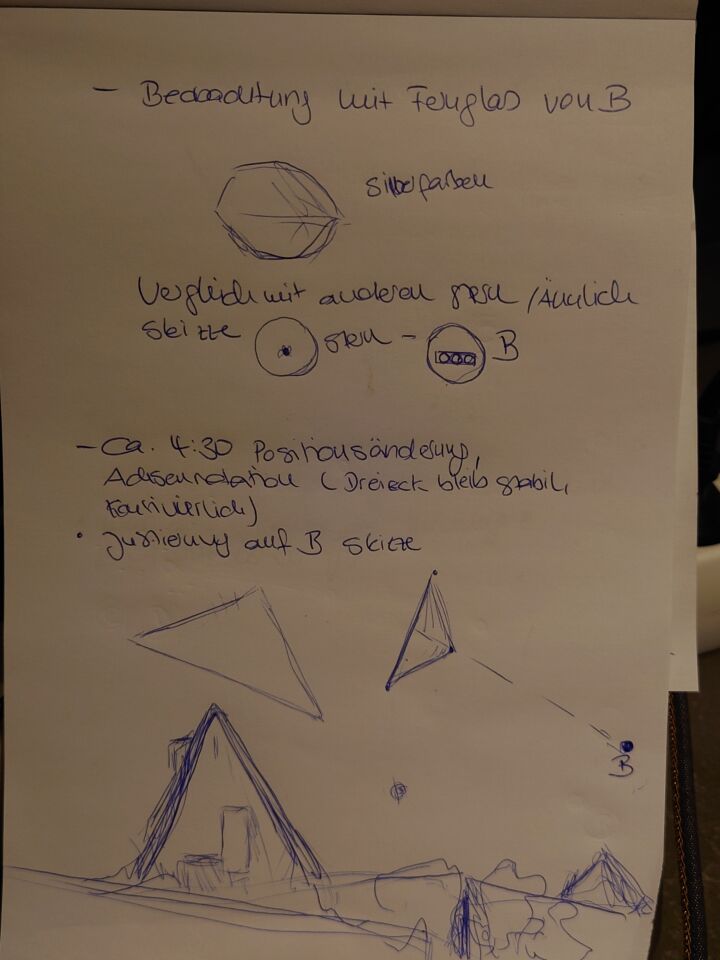 - Beobachtung mit Fernglas von B
silberfarben
Vergleich mit anderen Stern / Ähnlich
Skizze Stern - B
- Ca. 4:30 Positionsänderung,
Achsenrotation (Dreieck bleib stabil,
)
• Justierung auf B Skizze
B